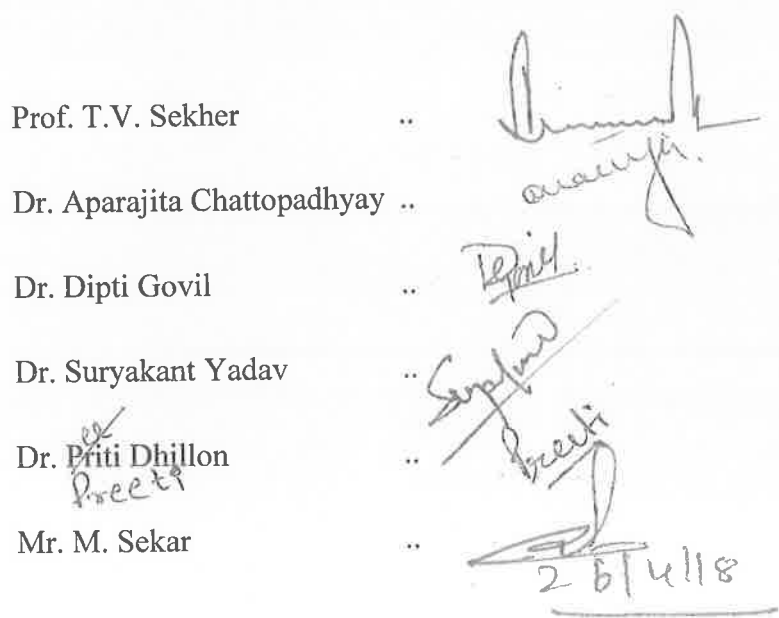 Prof. T.V. Sekher ..
Dr. Aparajita Chattopadhyay ..
Dr. Dipti Govil ..
Dr. Suryakant Yadav ..
ee
Dr. Priti Dhillon .. Preeti
Preeti
Mr. M. Sekar ..
26/4/18